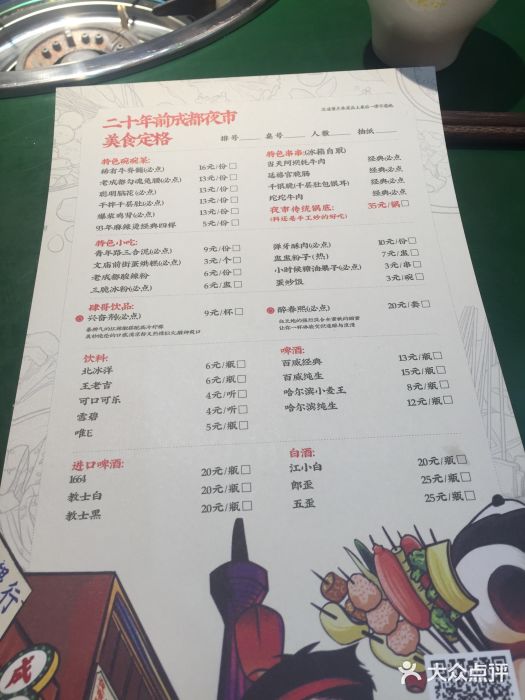 二十年前成都夜市
美食定格
排号 桌号 人数 抽纸
特色碗碗菜:
稀有牛脊髓(必点) 16元/份
老成都勾魂兔腰(必点) 13元/份
聪明脑花(必点) 13元/份
干拌千层肚(必点) 13元/份
爆浆鸡肾(必点) 13元/份
93年麻辣烫经典四样 5元/份
特色串串:(冰箱自取)
当天阿坝牦牛肉 经典必点
延禧宫脆肠 经典必点
千银脆(千层肚包银耳) 经典必点
坨坨牛肉 经典必点
夜市传统锅底: 35元/锅
(料还是手工炒的好吃)
特色小吃:
青年路三合泥(必点) 9元/份
文庙前街蛋烘糕(必点) 3元/个
老成都酸辣粉 6元/份
三脆冰粉(必点) 6元/盅
弹牙酥肉(必点) 10元/份
盅盅粉子(热) 7元/盅
小时候糖油果子(必点) 3元/串
蛋炒饭 3元/碗
肆哥饮品:
兴奋剂(必点) 9元/杯
醉春熙(必点) 20元/套
饮料:
北冰洋 6元/瓶
王老吉 6元/瓶
可口可乐 4元/听
雪碧 4元/听
唯E 5元/瓶
啤酒:
百威经典 13元/瓶
百威纯生 15元/瓶
哈尔滨小麦王 8元/瓶
哈尔滨纯生 12元/瓶
进口啤酒:
1664 20元/瓶
教士白 20元/瓶
教士黑 20元/瓶
白酒:
江小白 20元/瓶
郎歪 25元/瓶
五歪 25元/瓶
银行
成
大众点评